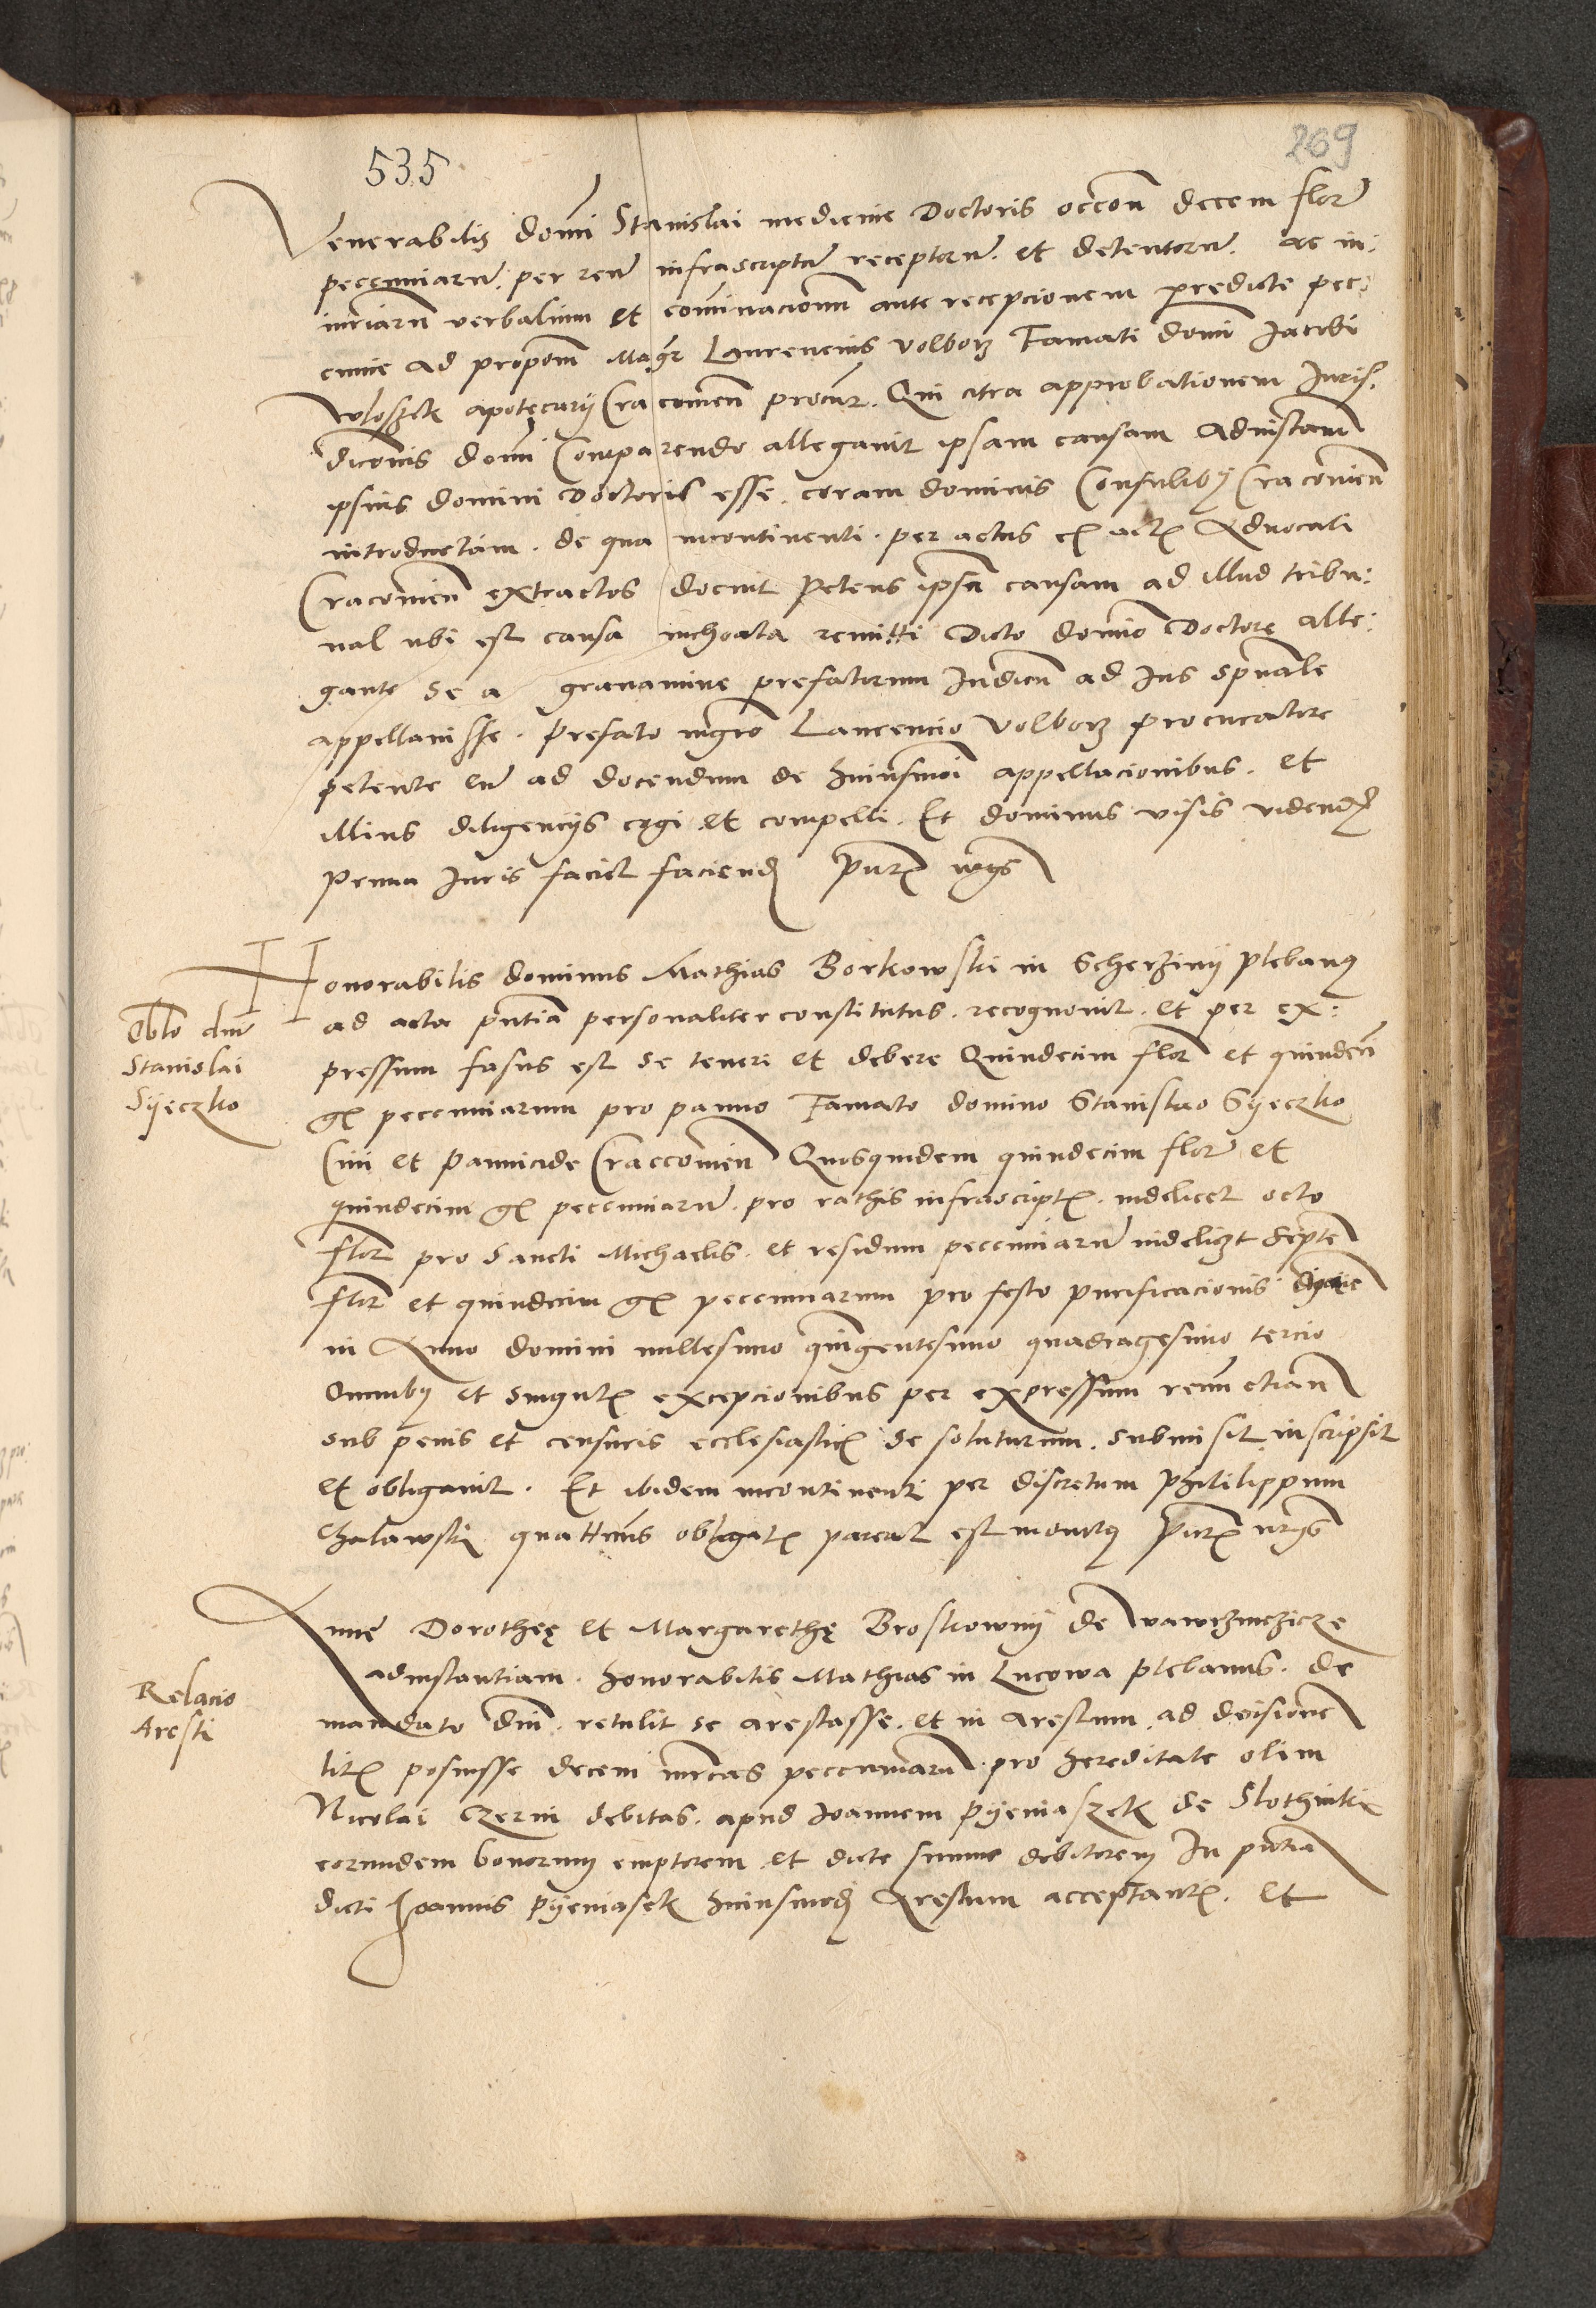 535
269
Venerabilis domi Stanislai medicine Doctoris occōn decem flor
pecuniarū per reū infrascriptū receptorū et detentorū. ac in:
iuriarū verbalium et cominacionū ante recepcionem predicte pec:
cunie ad propoēm Mağr Laurencius Volborz Famati domi Jacobi
apotecarij Cracovieñ procur. Qui citra approbationem Juris:
dicōnis domi Comparendo allegavit ipsam causam Adinstanā
ipsius domini Doctoris esse coram dominis Consulibꝫ Cracovieñ
introductam. de qua incontinenti per actus ex actis Advocati
Cracovieñ extractos docuit Petens ipsā causam ad illud tribu:
nal ubi est causa inchoata remitti Dicto domino Doctore alle:
gante se a gravamine prefatorum Judicū ad Jus spūale
appellavisse. Prefato mgrō Laurencio Volborz procuratore
petente eū ad docendum de huiusmōi appellacionibus. et
illius diligencijs cogi et compelli. Et dominus visis vidend
Prima Juris faciet faciend Pntꝫ
Honorabilis dominus Mathias Borkowski in Scherziny plebanꝰ
ad acta pntia personaliter constitutus. recognovit. et per ex:
pressum fassus est se teneri et debere Quindecim flor et quindeci
gꝫ peccuniarum pro panno Famato domino Stanislao Syeczko
Civi et Pannicide Craccovieñ Quosquidem quindecim flor et
quindecim gꝫ peccuniarū. pro rathis infrascriptꝫ. videlicet octo
flor pro Sancti Michaelis. et residuum peccuniarū videliczt Septē
flor et quindecim gꝫ peccuniarum pro festo purificacionis
in Anno domini millesimo quingentesimo quadragesimo tercio
Omnibꝫ et singulꝫ excepcionibus per expressum renūctians
sub penis et censuris ecclesiasticꝫ se soluturum. submisit inscripsit
et obligavit. Et ibidem incontinenti per discretum Philippum
Chalawski quattenus obligatꝫ pareat est monitꝰ Pntꝫ
Oblo dni
Stanislai
Syeczko
Anne Dorothee et Margarethe Broskowny de
adinstantiam. honorabilis Mathias in Lucowa plebanus. de
mandato dni. retulit se arestasse. et in arestum ad decisionē
litꝫ posuisse decem mrcas peccuniarū pro hereditate olim
Nicolai Czerni debitas. apud Joannem Pyeniaszek de Slothniki
eorundem bonorum emptorem et dicte summe debitorem In pntia
dicti Joannis Pyeniasek huiusmodi Arestum acceptantꝫ. et
Relacio
Aresti